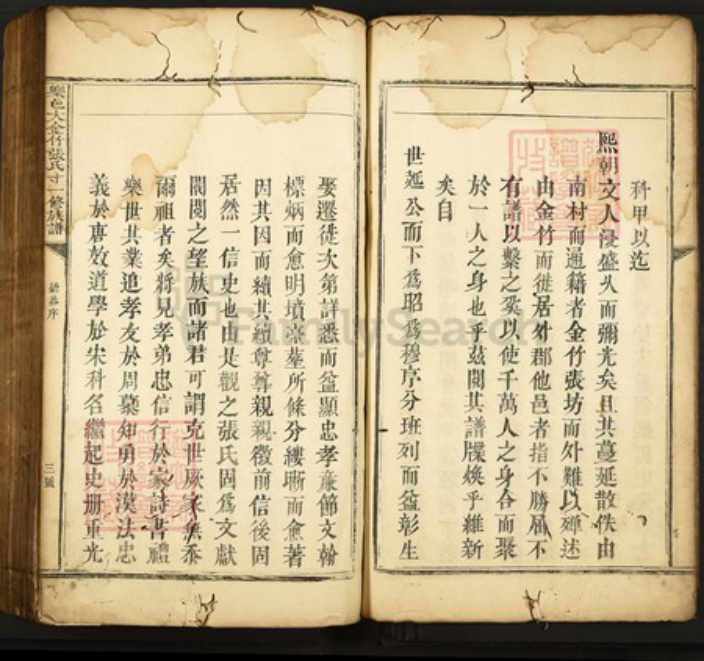 科甲以迄
熙朝文人浸盛久而彌光矣且其蔓延散佚由
南村而通籍者金竹張坊而外難以殫述
由金竹而徙居外郡他邑者指不勝屈不
有譜以繫之奚以使千萬人之身合而聚
於一人之身也乎茲閱其譜牒煥乎維新
矣自
世延公而下為昭為穆序分班列而益彰生
娶遷徙次第詳悉而益顯忠孝廉節文翰
標炳而愈明墳塋所條分縷晰而愈著
因其因而續其續尊尊親親徵前信後固
居然一信史也由是觀之張氏固為文獻
閥閱之望族而諸君可謂克世厥家無忝
爾祖者矣將見孝弟忠信行於家詩書禮
樂世其業追孝友於周慕知勇於漢法忠
義於唐效道學於宋科名繼起史册重光
樂邑大金竹張氏十一修族譜
序
三號
FamilySearch